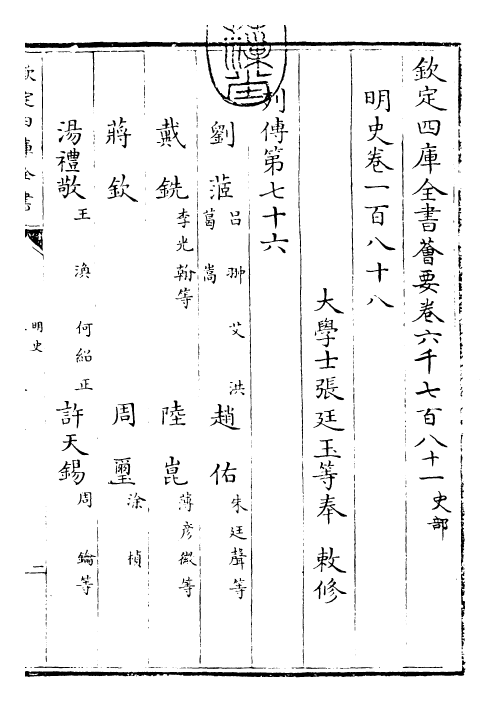 欽定四庫全書薈要卷六千七百八十一 史部
明史卷一百八十八
大學士張廷玉等奉 敕修
列傳第七十六
劉蒞 呂翀 艾洪 葛嵩 趙佑 朱廷聲等
戴銑 李光翰等 陸崑 薄彥徽等
蔣欽 周璽 涂禎
湯禮敬 王渙 何紹正 許天錫 周鑰等
欽定四庫全書
明史
二